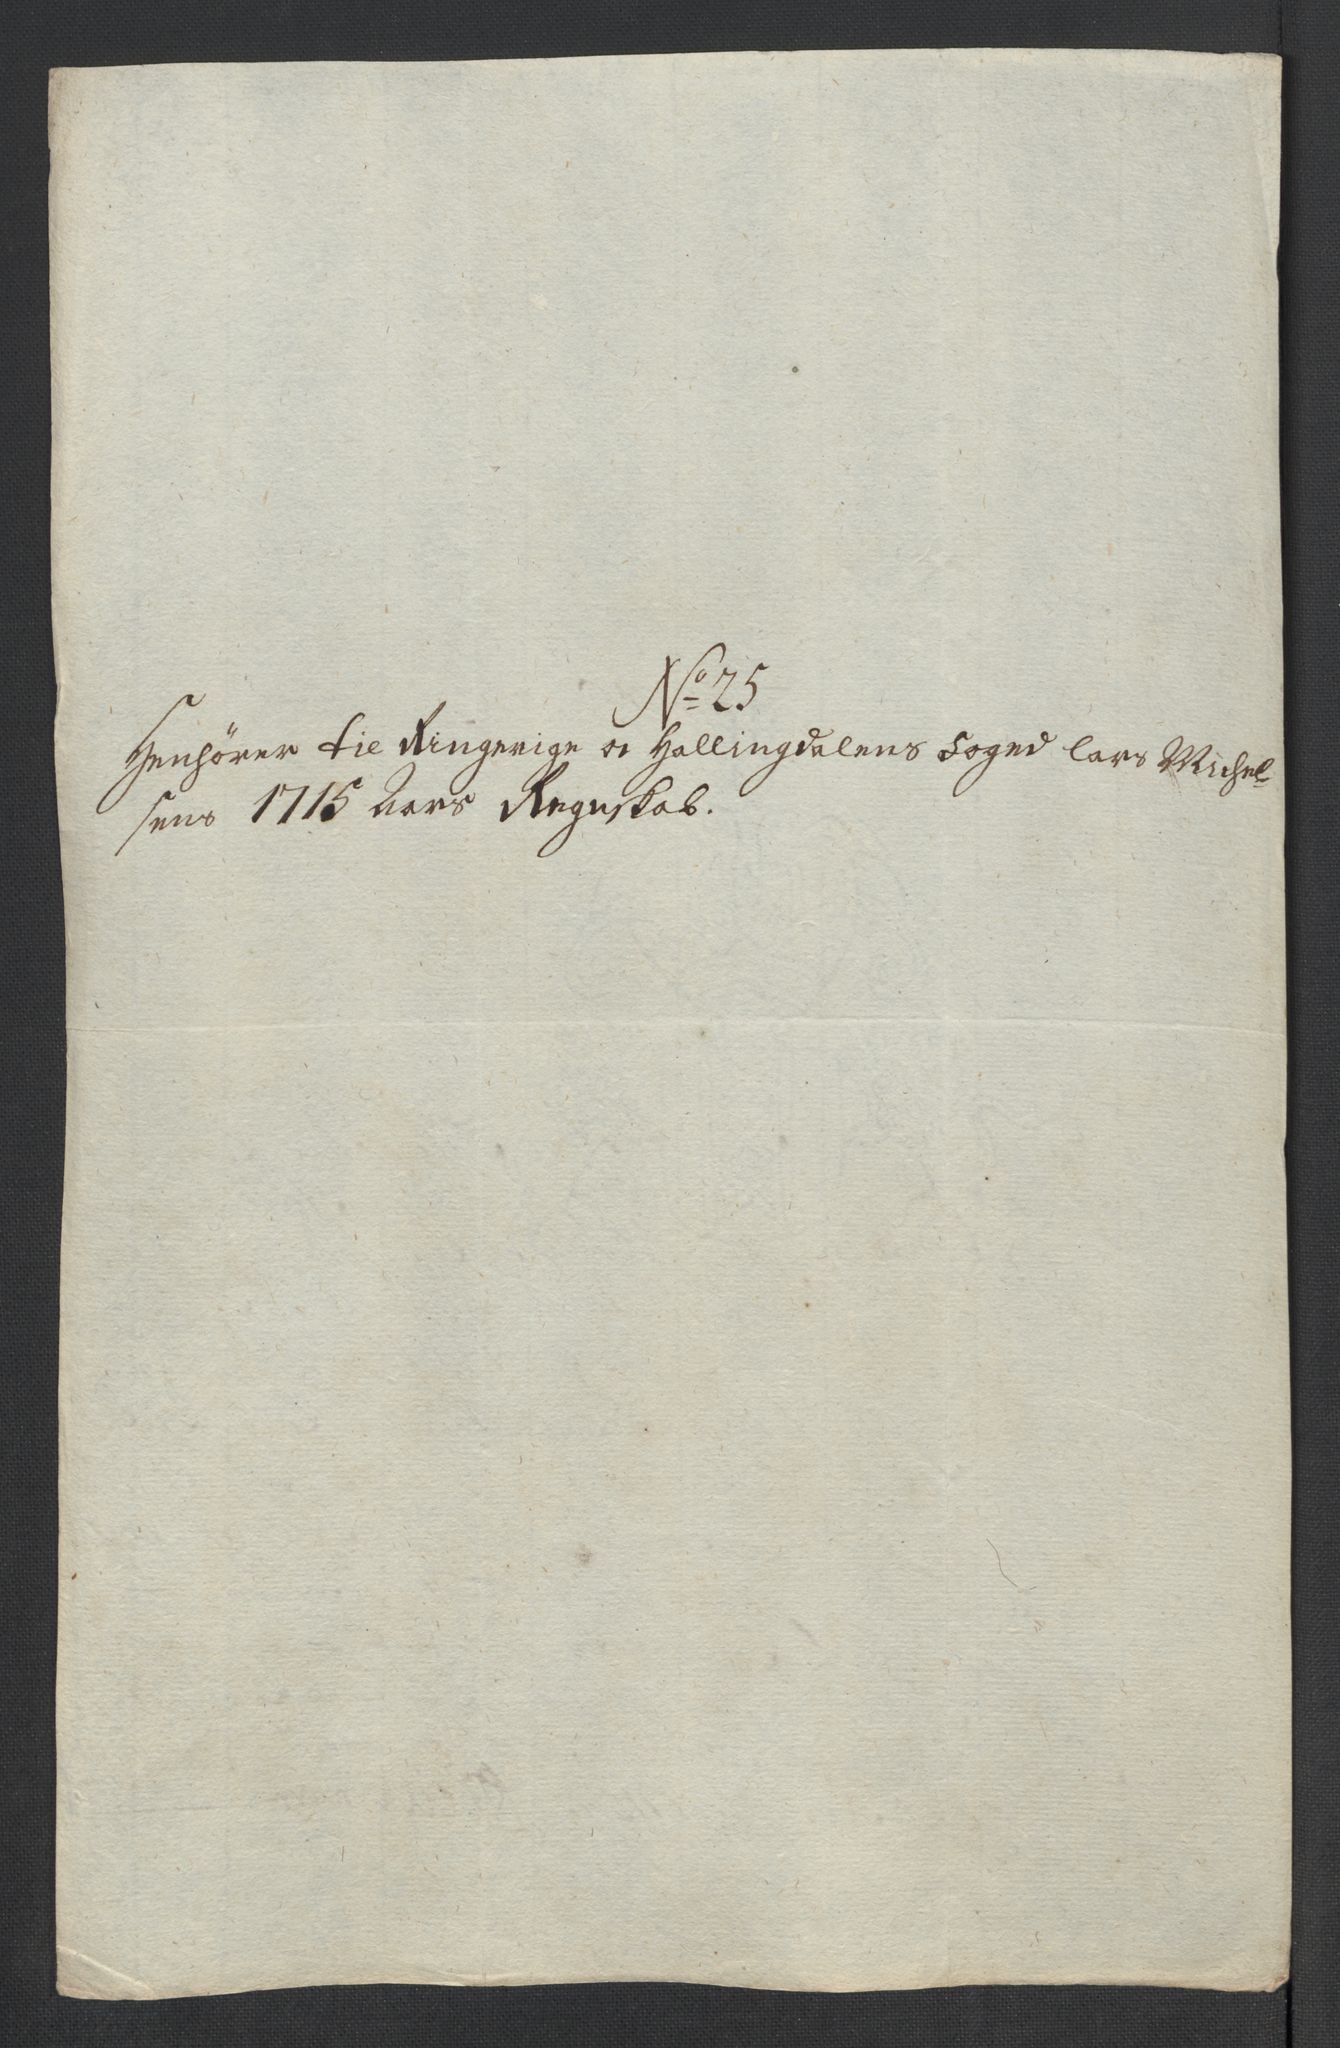 No 25
Henhörer til Ringerige og Hallingdalens Foged Lars Michel-
sens 1715 Aars Regnskab.